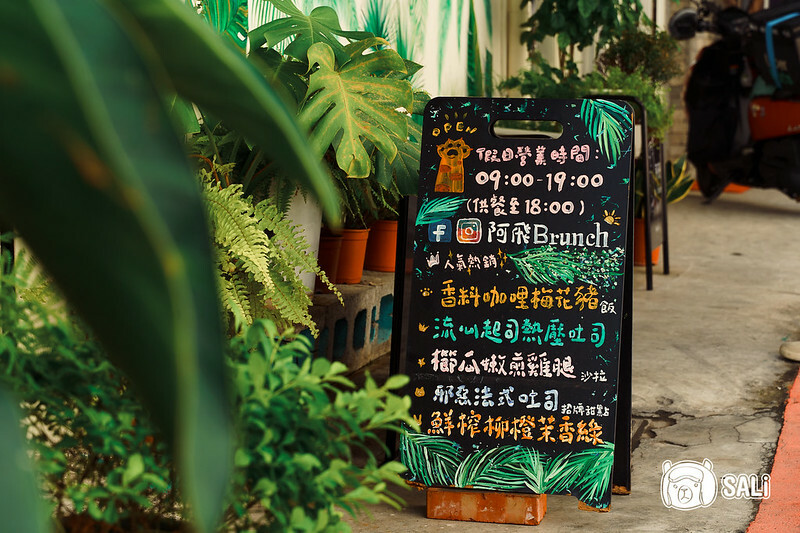 OPEN
假日營業時間:
09:00-19:00
(供餐至18:00)
阿飛Brunch
人氣熱銷
香料咖哩梅花豬飯
流心起司熱壓吐司
櫛瓜嫩煎雞腿沙拉
邪惡法式吐司招牌甜點
鮮榨柳橙茉香綠
SALi